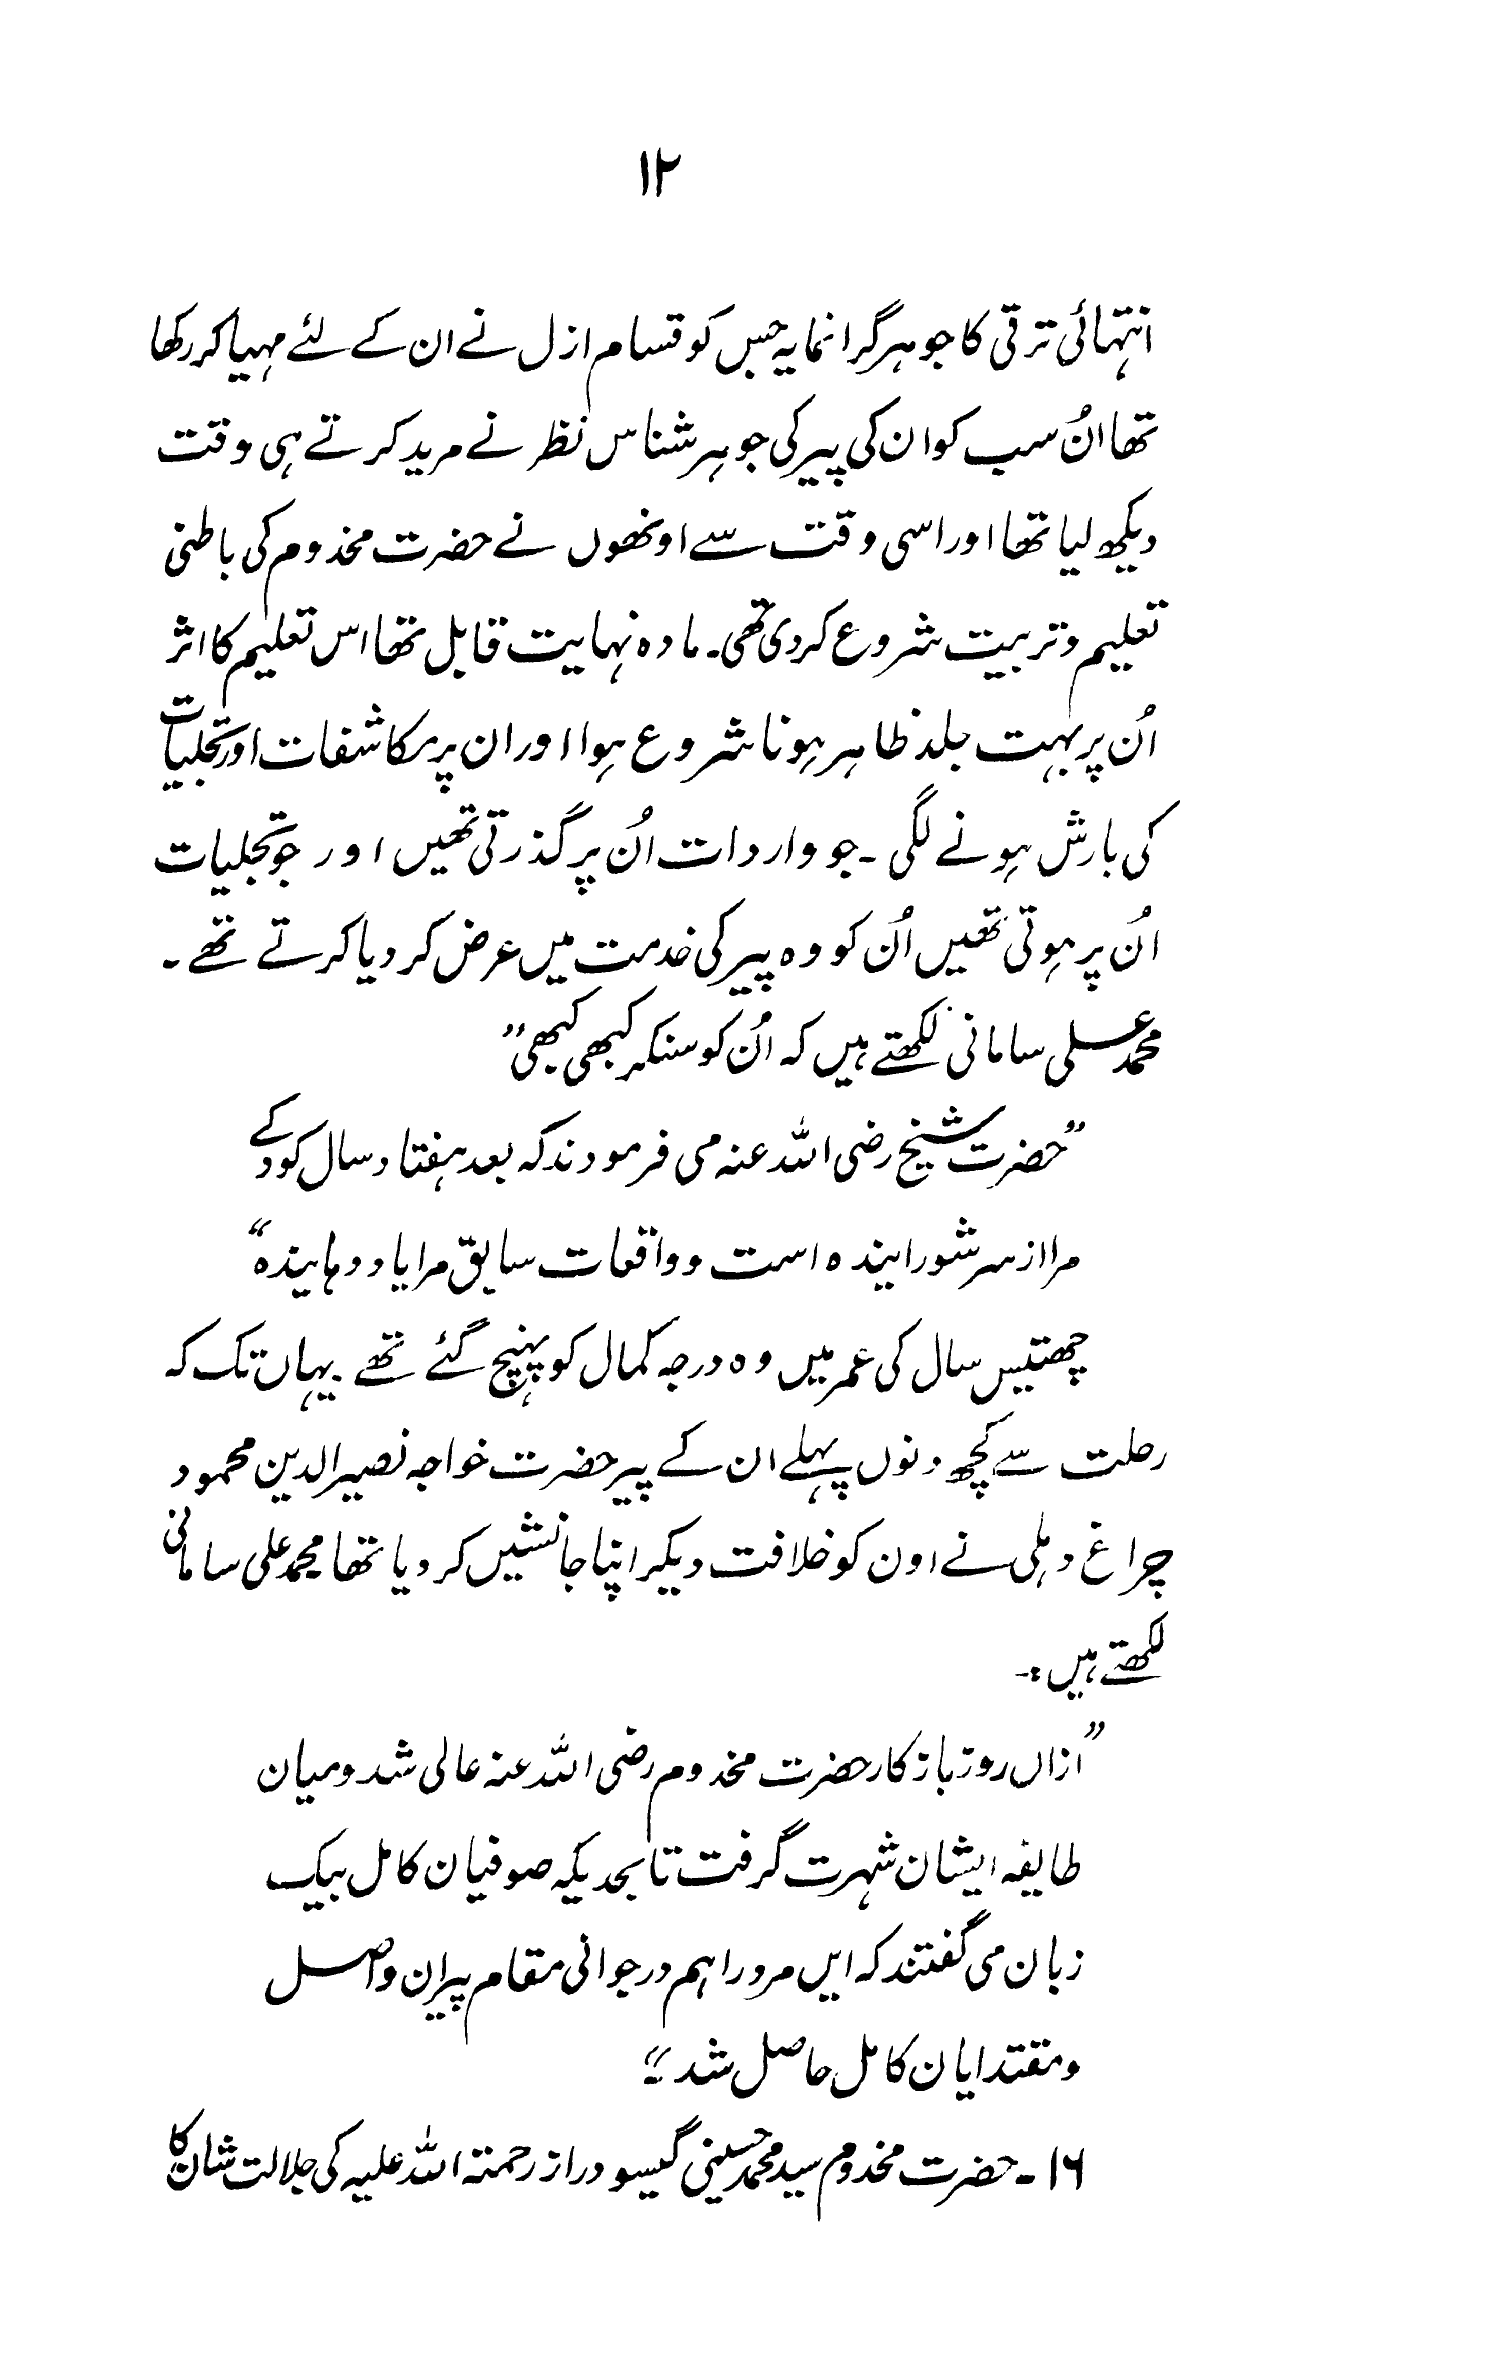 ۱۲
انتہائی ترقی کا جوہر گرانمایہ جس کو قسام ازل نے ان کے لئے مہیا کر رکھا
تھا اُن سب کو ان کی پیر کی جوہر شناس نظر نے مرید کرتے ہی وقت
دیکھ لیا تھا اور اسی وقت سے اونھوں نے حضرت مخدوم کی باطنی
تعلیم و تربیت شروع کردی تھی۔ مادہ نہایت قابل تھا اس تعلیم کا اثر
اُن پر بہت جلد ظاہر ہونا شروع ہوا اور ان پر مکاشفات اور تجلیات
کی بارش ہونے لگی ۔ جو واردات اُن پر گذرتی تھیں اور جو تجلیات
اُن پر ہوتی تھیں اُن کو وہ پیر کی خدمت میں عرض کر دیا کرتے تھے ۔
محمد علی سامانی لکھتے ہیں کہ اُن کو سنکر کبھی کبھی”
”حضرت شیخ رضی اللہ عنہ می فرمودند کہ بعد ہفتاد سال کودکے
مرا از سر شورایندہ است و واقعات سابق مرا یاد دہایندہ“
چھتیس سال کی عمر میں وہ درجہ کمال کو پہنچ گئے تھے یہاں تک کہ
رحلت سے کچھ دنوں پہلے ان کے پیر حضرت خواجہ نصیر الدین محمود
چراغ دہلی نے اون کو خلافت دیکر اپنا جانشیں کر دیا تھا محمد علی سامانی
لکھتے ہیں :۔
”ازاں روز باز کار حضرت مخدوم رضی اللہ عنہ عالی شد و میان
طایفہ ایشان شہرت گرفت تا بحدیکہ صوفیان کامل بیک
زبان می گفتند کہ ایں مرد را ہم در جوانی مقام پیران واصل
و مقتدایان کامل حاصل شد“۔
۱۶ ۔ حضرت مخدوم سید محمد حسینی گیسو دراز رحمتہ اللہ علیہ کی جلالت شان کا